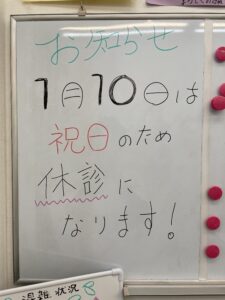 お知らせ
1月10日は
祝日のため
休診に
なります!
混雑状況